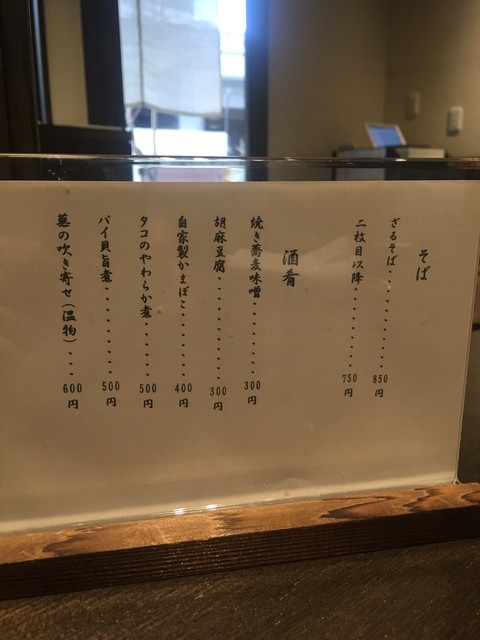 そば
ざるそば・・・・・・・・・850円
二枚目以降・・・・・・・・・750円
酒肴
焼き蕎麦味噌・・・・・・・・300円
胡麻豆腐・・・・・・・・・・300円
自家製かまぼこ・・・・・・・400円
タコのやわらか煮・・・・・・500円
バイ貝旨煮・・・・・・・・・500円
の吹き寄せ(温物)・・・600円